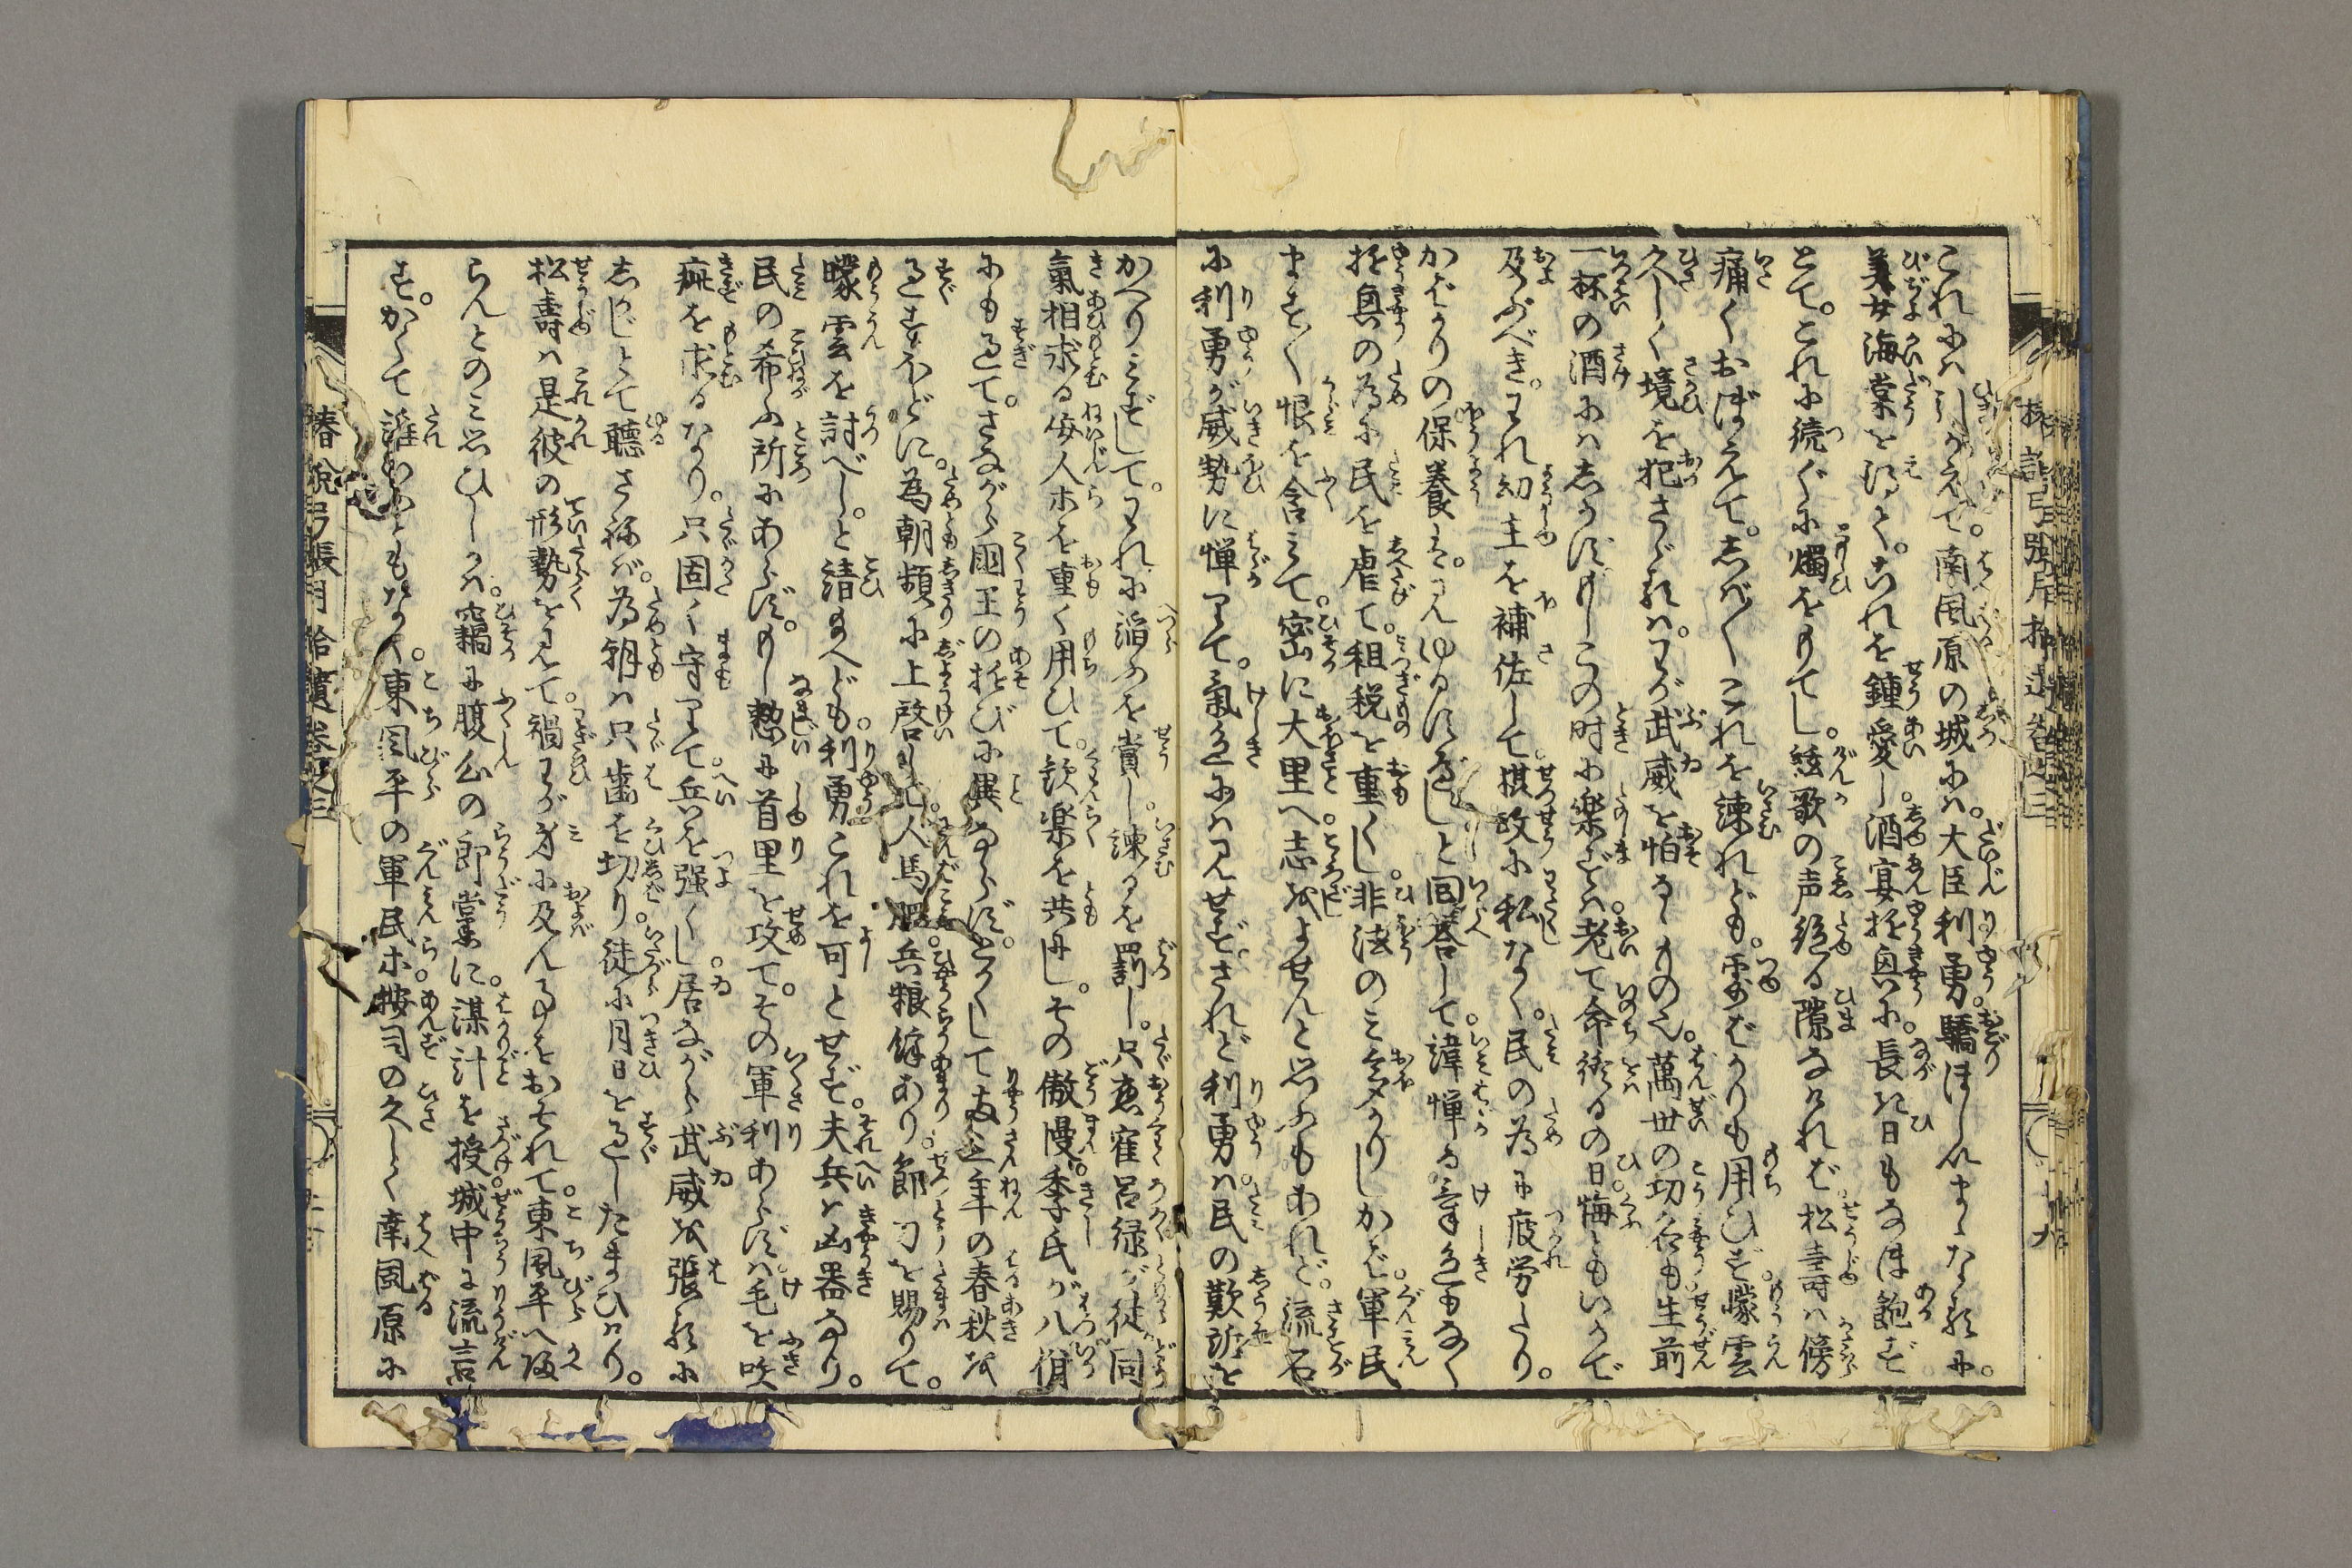 これにハひきかえて。南風原の城にハ。大臣利勇。驕ほしいまゝなるに。
美女海棠を得て。これを鍾愛し。酒宴遊興に。長き日もなほ飽ず
とて。これに続ぐに燭をもてし。絃歌の声絶る隙なけれバ。松壽ハ傍
痛くおぼえて。しば〳〵これを諫れども。露ばかりも用ひず。曚雲
久しく境を犯さゞるハ。わが武威を怕るゝもの也。萬世の功名も生前
一杯の酒にハしかず。もしこの时に楽ずハ。老て命終るの日。悔ともいかで
及ぶべき。われ幼主を補佐して。摂政に私なく。民の為に疲労たり。
かばかりの保養ハ。天ゆるすべしと回荅して。諱憚る氣色もなく
遊興の為に民を虐て。租税を重くし。非法のミ多かりしかバ。軍民
ます〳〵恨を含ミて。密に大里へ志をよせんと思ふもあれど。流石
に利勇が威勢に憚りて。氣色にハ見せず。されど利勇ハ。民の歎訴を
かへりミずして。われに諂ふを賞し。諫るを罰し。只袁崔呂緑が徒。同
氣相求る侫人ホを重く用ひて。歓楽を共にし。その傲慢。季氏が八佾
にも過て。さながら國王の遊びに異ならず。とかくして両三年の春秋を
過すほどに。為朝頻に上啓し。人馬肥。兵粮餘あり。節刀を賜りて。
曚雲を討べしと請まへども。利勇これを可とせず。夫兵ハ凶器なり。
民の希ふ所にあらず。もし憖に首里を攻て。その軍利あらずハ。毛を吹
疵を求るなり。只固く守りて。兵を强くし。居ながら武威を張るに
しかじとて聴さねバ。為朝ハ只歯を切り。徒に月日を過したまひけり。
松壽ハ是彼の形勢を見て。禍わが身に及んことをおそれて。東風平へ皈
らんとのミ思ひしかバ。竊に腹心の郎黨に。謀計を授。城中に流言
す。かくて誰いふともなく。東風平の軍民ホ按司の久しく南風原に
椿說弓張月拾遺卷之三